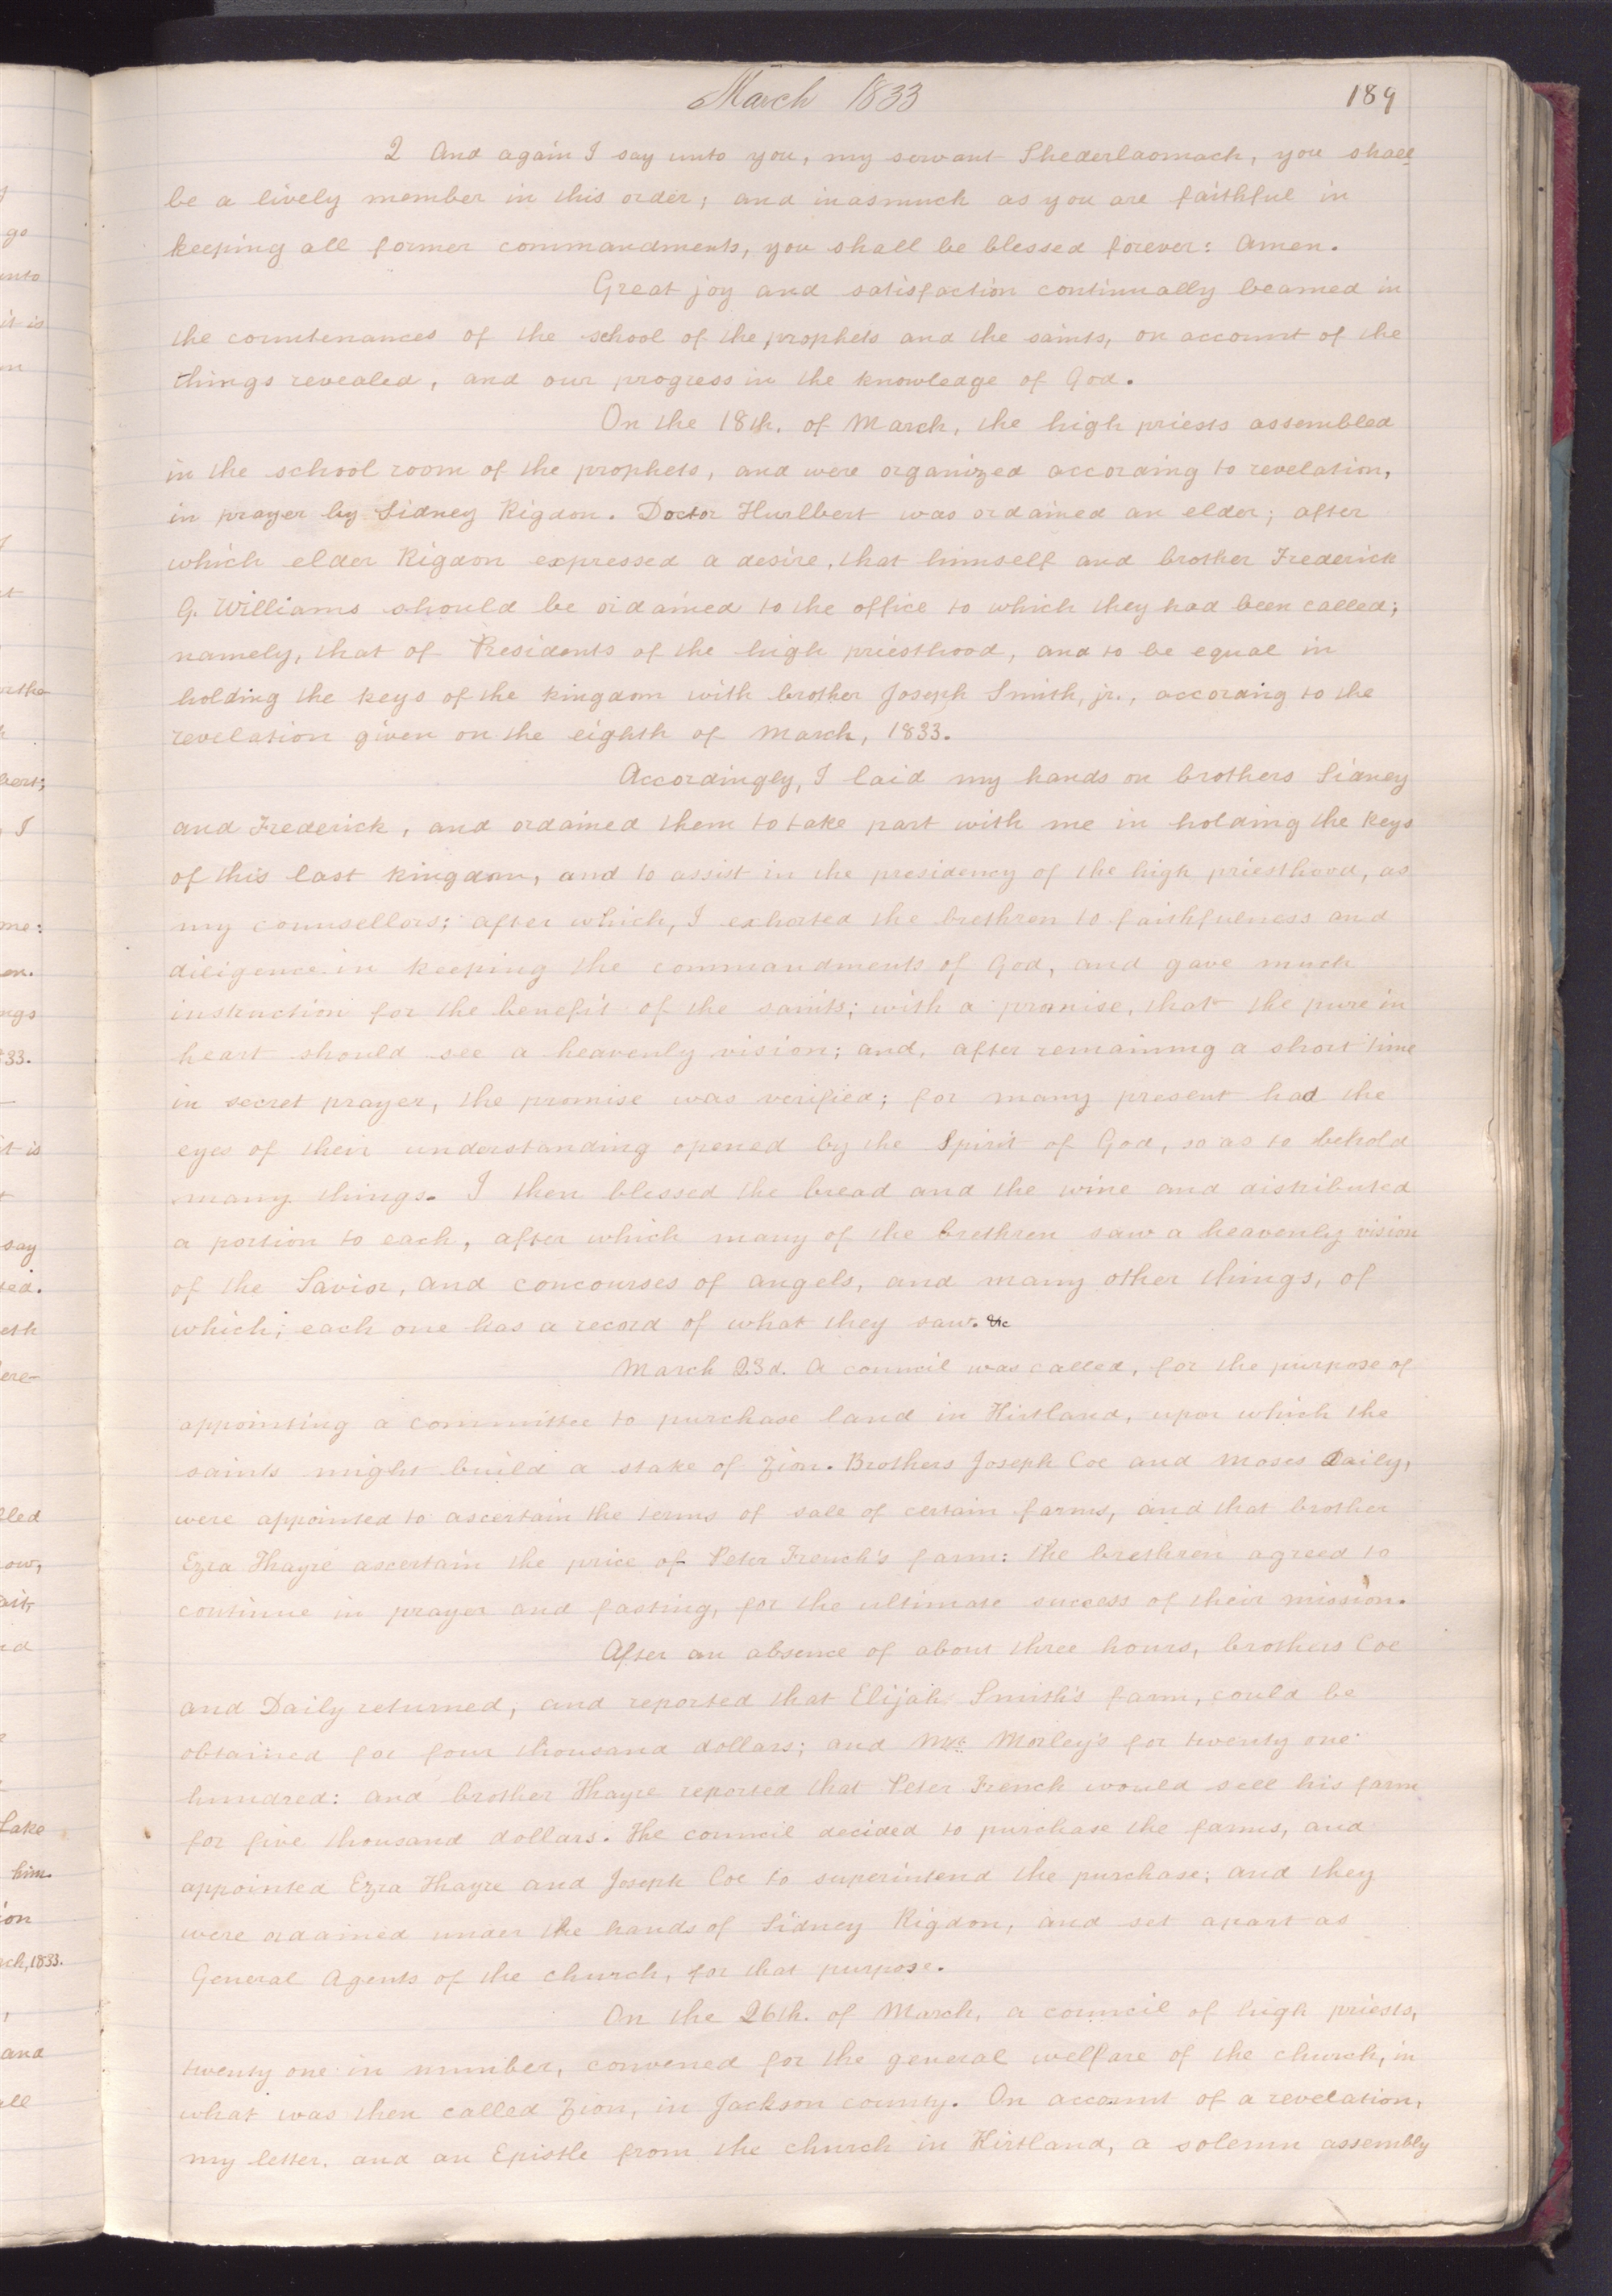 March 1833
189
2 And again I say unto you, my servant Shederlaomach, you shall
be a lively member in this order; and inasmuch as you are faithful in
keeping all former commandments, you shall be blessed forever: Amen.
Great joy and satisfaction continually beamed in
the countenances of the school of the prophets and the saints, on account of the
things revealed, and our progress in the knowledge of God.
On the 18th. of March, the high priests assembled
in the school room of the prophets, and were organized according to revelation,
in prayer by Sidney Rigdon. Doctor Hurlbert was ordained an elder; after
which elder Rigdon expressed a desire, that himself and brother Frederick
G. Williams should be ordained to the office to which they had been called;
namely, that of Presidents of the high priesthood, and to be equal in
holding the keys of the kingdom with brother Joseph Smith, jr., according to the
revelation given on the eighth of March, 1833.
Accordingly, I laid my hands on brothers Sidney
and Frederick, and ordained them to take part with me in holding the keys
of this last kingdom, and to assist in the presidency of the high priesthood, as
my counsellors; after which, I exhorted the brethren to faithfulness and
diligence in keeping the commandments of God, and gave much
instruction for the benefit of the saints; with a promise, that the pure in
heart should see a heavenly vision; and, after remaining a short time
in secret prayer, the promise was verified; for many present had the
eyes of their understanding opened by the Spirit of God, so as to behold
many things. I then blessed the bread and the wine and distributed
a portion to each, after which many of the brethren saw a heavenly vision
of the Savior, and concourses of angels, and many other things, of
which; each one has a record of what they saw. &c
March 23d. A council was called, for the purpose of
appointing a committee to purchase land in Kirtland, upon which the
saints might build a stake of Zion. Brothers Joseph Coe and Moses Daily,
were appointed to ascertain the terms of sale of certain farms, and that brother
Ezra Thayre ascertain the price of Peter French's farm: the brethren agreed to
continue in prayer and fasting, for the ultimate success of their mission.
After an absence of about three hours, brothers Coe
and Daily returned, and reported that Elijah Smith's farm, could be
obtained for four thousand dollars; and Morley's for twenty one
hundred: and brother Thayre reported that Peter French would sell his farm
for five thousand dollars. The council decided to purchase the farms, and
appointed Ezra Thayre and Joseph Coe to superintend the purchase; and they
were ordained under the hands of Sidney Rigdon, and set apart as
General Agents of the church, for that purpose.
On the 26th. of March, a council of high priests,
twenty one in number, convened for the general welfare of the church, in
what was then called Zion, in Jackson county. On account of a revelation,
my letter, and an Epistle from the church in Kirtland, a solemn assembly